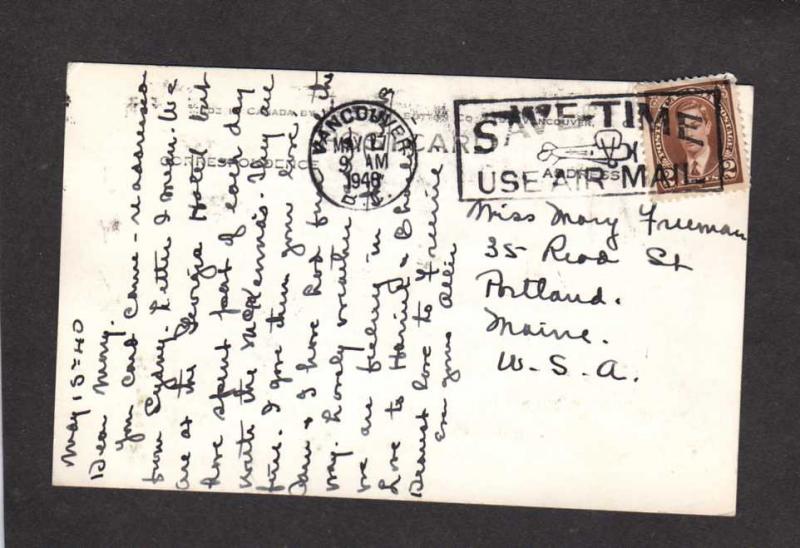 MADE IN CANADA BY
VANCOUVER.
CARD
CORRESPONDENCE
ADDRESS
VANCOUVER
MAY 17
9 AM
1948
SAVE TIME
USE AIR MAIL
2
Miss Mary Freeman
35 Read St
Portland.
Maine.
U.S.A.
May 15-40
Dear Mary.
Your card came - readdressed
from Sydney. Letter I mean. We
are at the Georgia Hotel but
have spent part of each day
with the McKennas. They are
fine. I gave them your love.
& I have had fun the
way. Lovely weather
we are feeling in
Love to Harriet &
Dearest love to Freenie
Ever yours Allie